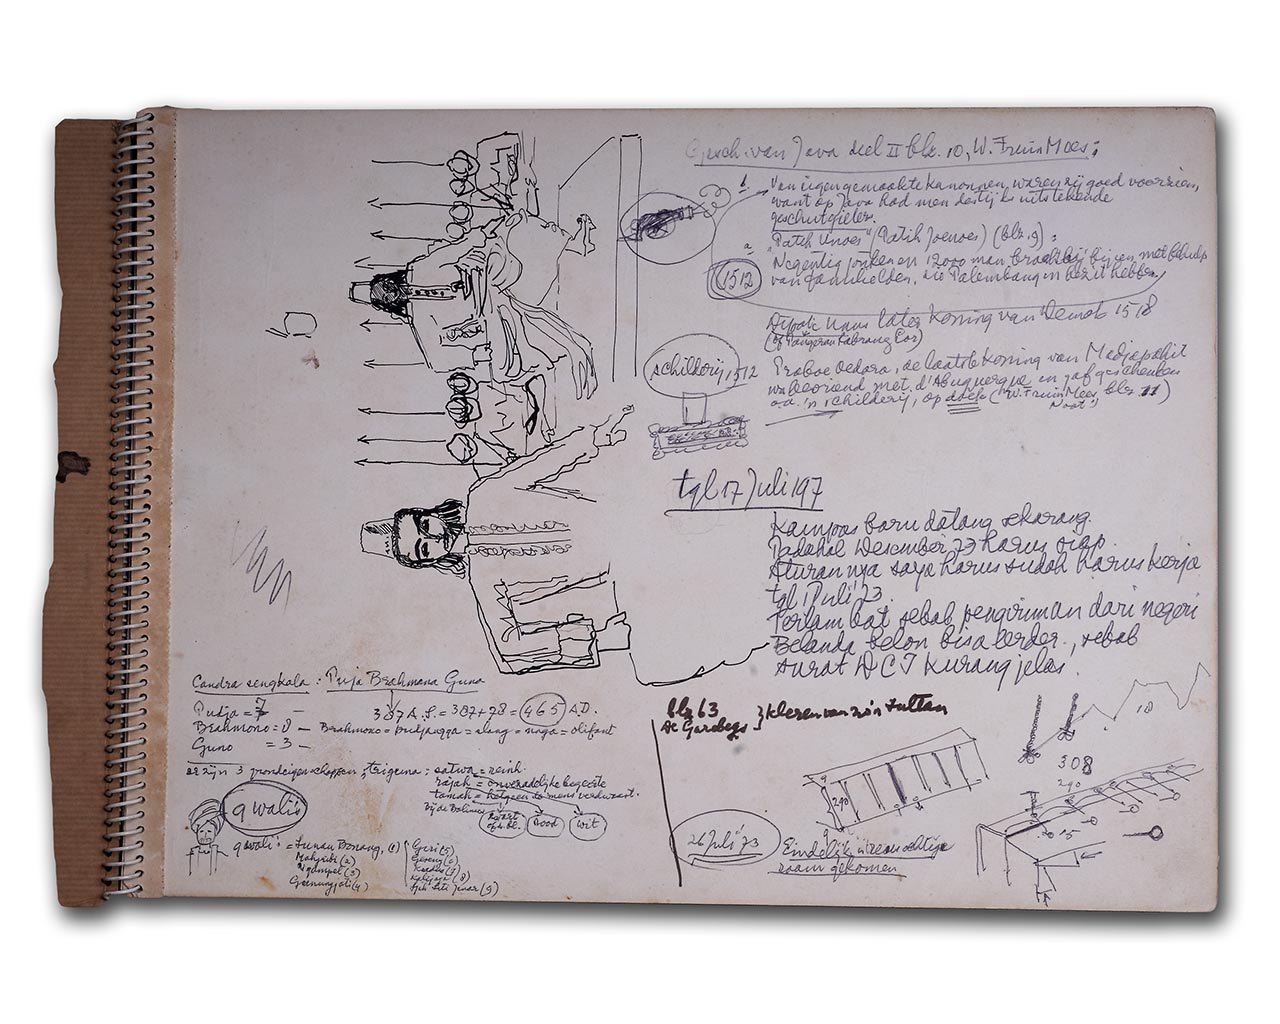 Gesch. van Java deel II blz. 10, W. Fruin Mees:
Van eigengemaakte kanonnen, waren zij goed voorzien,
want op Java had men destijds uitstekende
geschutgieter.
"Patih Unoes" (Patih Joenoes) (blz. 9):
Negentig jonken en 12000 man bracht hij bijeen met behulp
van familieleden, die Palembang in bezit hebben.
1512
Dipati Unus later Koning van Demak 1518
(of Pangeran Sabrang Lor)
schilderij 1512
Praboe Oedara, de laatste koning van Madjapahit
was bevriend met d'Albuquerque en gaf geschenken
o.a. 'n schilderij, op doek ("W. Fruin Mees, blz. 11)
Noot"
tgl 17 Juli 197
Kampas baru datang sekarang.
Padahal Desember 73 harus siap.
Aturannya saya harus sudah harus kerja
tgl 1 Juli '73.
Terlambat sebab pengiriman dari negeri
Belanda belon bisa berder., sebab
surat DCI kurang jelas.
Candra sengkala: Puja Brahmana Guna
Pudja = 7 — 387 A.S. = 387+78 = 465 A.D.
Brahmono = 8 — Brahmono = pudjangga = slang = naga = olifant
Guno = 3 —
er zijn 3 grondeigenschappen, triguna: satwa = rein
rajah = onverzadelijke begeerte
tamah = hetgeen de mens verduistert.
bij de Baliners
zwart
of bl.
rood
wit
9 wali's
9 wali's = Sunan Bonang, (1)
Giri (5)
Ngampel (3)
Goenungjati (4)
Kalijaga (8)
Sjeh Siti Jenar (9)
blz 63
De Garebegs } kleren van z'n Sultan
290
26 Juli '73
Eindelijk
raam gekomen
18
308
290
15